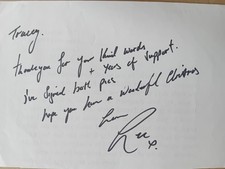 Tracey.
Thankyou for your kind words
+ years of support.
I've signed both pics
hope you have a wonderful Christmas
Love
x